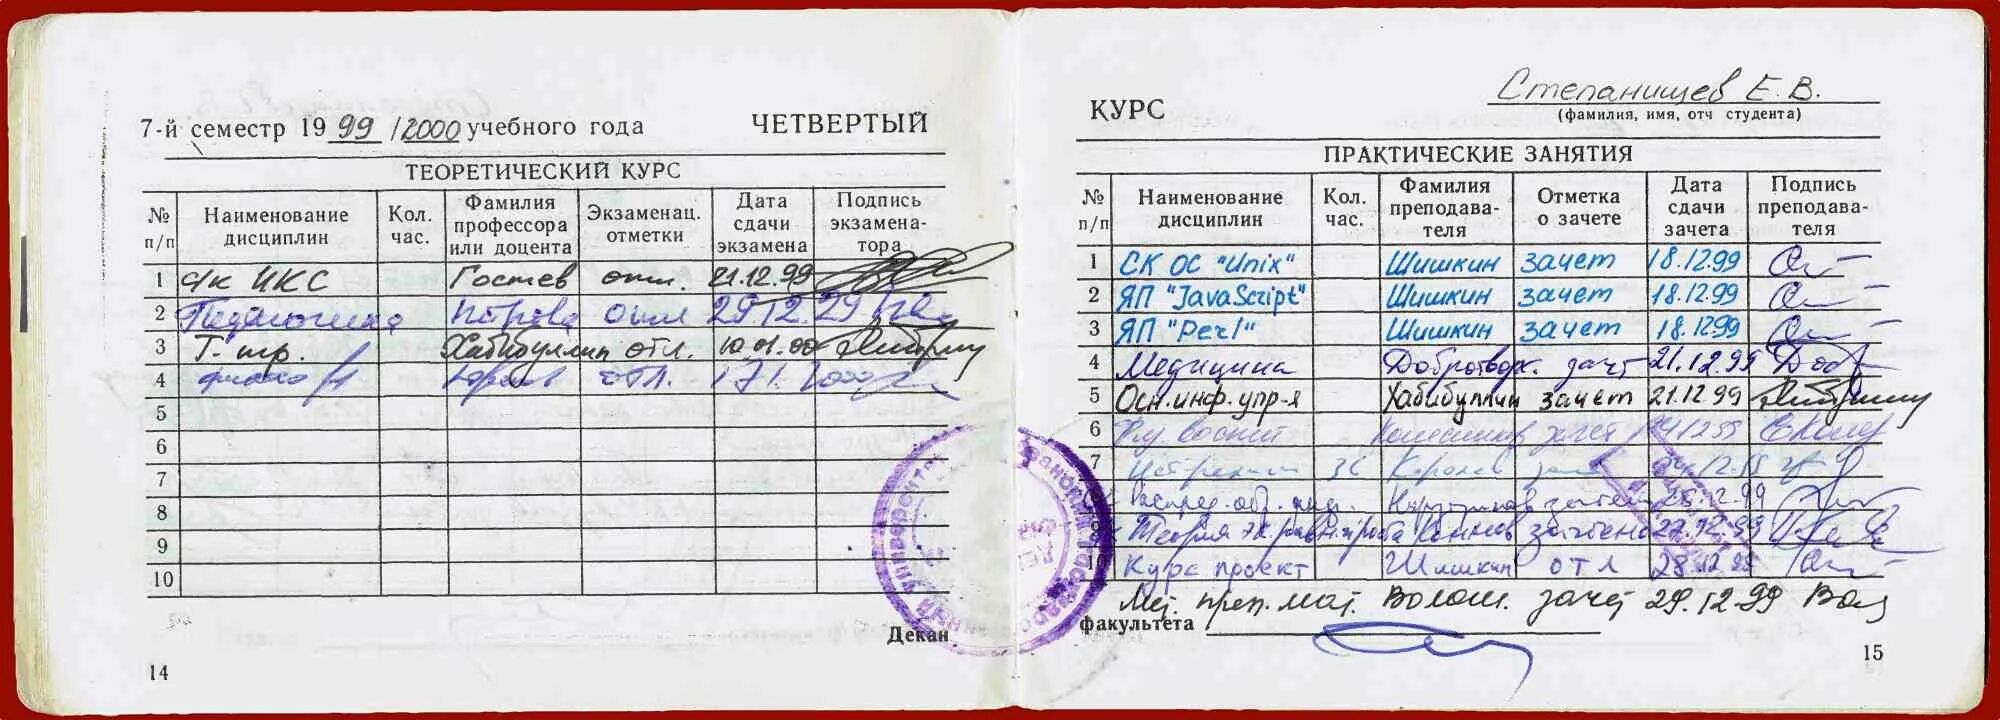 7-й семестр 1999/2000 учебного года ЧЕТВЕРТЫЙ
ТЕОРЕТИЧЕСКИЙ КУРС
№ п/п Наименование дисциплин Кол. час. Фамилия профессора или доцента Экзаменац. отметки Дата сдачи экзамена Подпись экзаменатора
1 с/к ИКС Гостев отл. 21.12.99
2 Педагогика Петрова отл 29.12.
3 Т-тр. Хабибуллин отл. 10.01.00
4 отл. 17.1.2000
5
6
7
8
9
10
Декан
14
Степанищев Е.В.
КУРС
(фамилия, имя, отч студента)
ПРАКТИЧЕСКИЕ ЗАНЯТИЯ
№ п/п Наименование дисциплин Кол. час. Фамилия преподавателя Отметка о зачете Дата сдачи зачета Подпись преподавателя
1 СК ОС "Unix" Шишкин зачет 18.12.99
2 ЯП "JavaScript" Шишкин зачет 18.12.99
3 ЯП "Perl" Шишкин зачет 18.12.99
4 Медицина Добротвор. зачт 21.12.99
5 Осн.инф.упр-я Хабибуллин зачет 21.12.99
6 зачет
7 Королев
Распред. зачтено 26.12.99
9 Теория Коннов зачтено 27.12.99
10 Курс. проект Шишкин отл 28.12.99
Мет. преп. мат. Волош. зачет 29.12.99
факультета
15